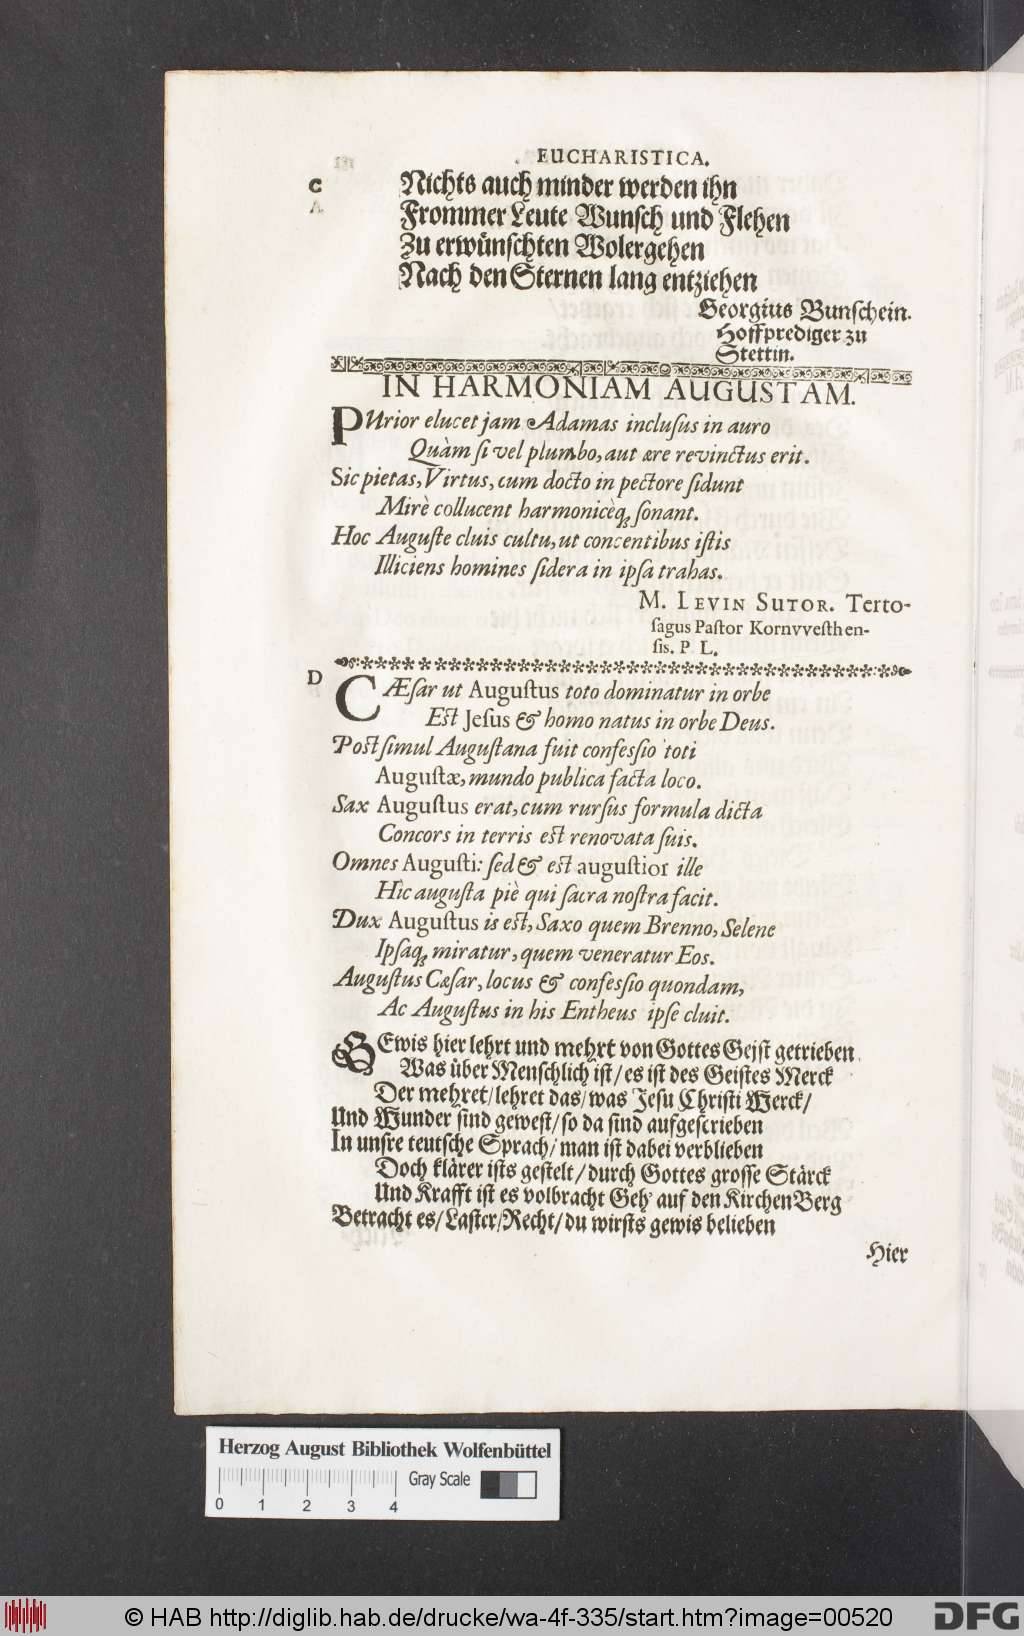 EUCHARISTICA.
C
Nichts auch minder werden ihn
A
Frommer Leute Wunsch und Flehen
Zu erwünschten Wolergehen
Nach den Sternen lang entziehen
Georgius Bunschein.
Hoffprediger zu
Stettin.
IN HARMONIAM AUGUSTAM.
PUrior elucet jam Adamas inclusus in auro
Quàm si vel plumbo, aut ære revinctus erit.
Sic pietas, Virtus, cum docto in pectore sidunt
Mirè collucent harmonicèq; sonant.
Hoc Auguste cluis cultu, ut concentibus istis
Illiciens homines sidera in ipsa trahas.
M. LEVIN SUTOR. Terto-
sagus Pastor Kornvvesthen-
sis. P L.
D
CÆsar ut Augustus toto dominatur in orbe
Est Jesus & homo natus in orbe Deus.
Post simul Augustana fuit confessio toti
Augustæ, mundo publica facta loco.
Sax Augustus erat, cum rursus formula dicta
Concors in terris est renovata suis.
Omnes Augusti: sed & est augustior ille
Hìc augusta piè qui sacra nostra facit.
Dux Augustus is est, Saxo quem Brenno, Selene
Ipsaq; miratur, quem veneratur Eos.
Augustus Cæsar, locus & confessio quondam,
Ac Augustus in his Entheus ipse cluit.
GEwis hier lehrt und mehrt von Gottes Gejst getrieben
Was über Menschlich ist/ es ist des Geistes Merck
Der mehret/ lehret das/ was Jesu Christi Werck/
Und Wunder sind gewest/ so da sind aufgescrieben
In unsre teutsche Sprach/ man ist dabei verblieben
Doch klärer ists gestelt/ durch Gottes grosse Stärck
Und Krafft ist es volbracht Geh auf den KirchenBerg
Betracht es/ Laster/ Recht/ du wirsts gewis belieben
Hier
Herzog August Bibliothek Wolfenbüttel
Gray Scale
0 1 2 3 4
© HAB http://diglib.hab.de/drucke/wa-4f-335/start.htm?image=00520
DFG